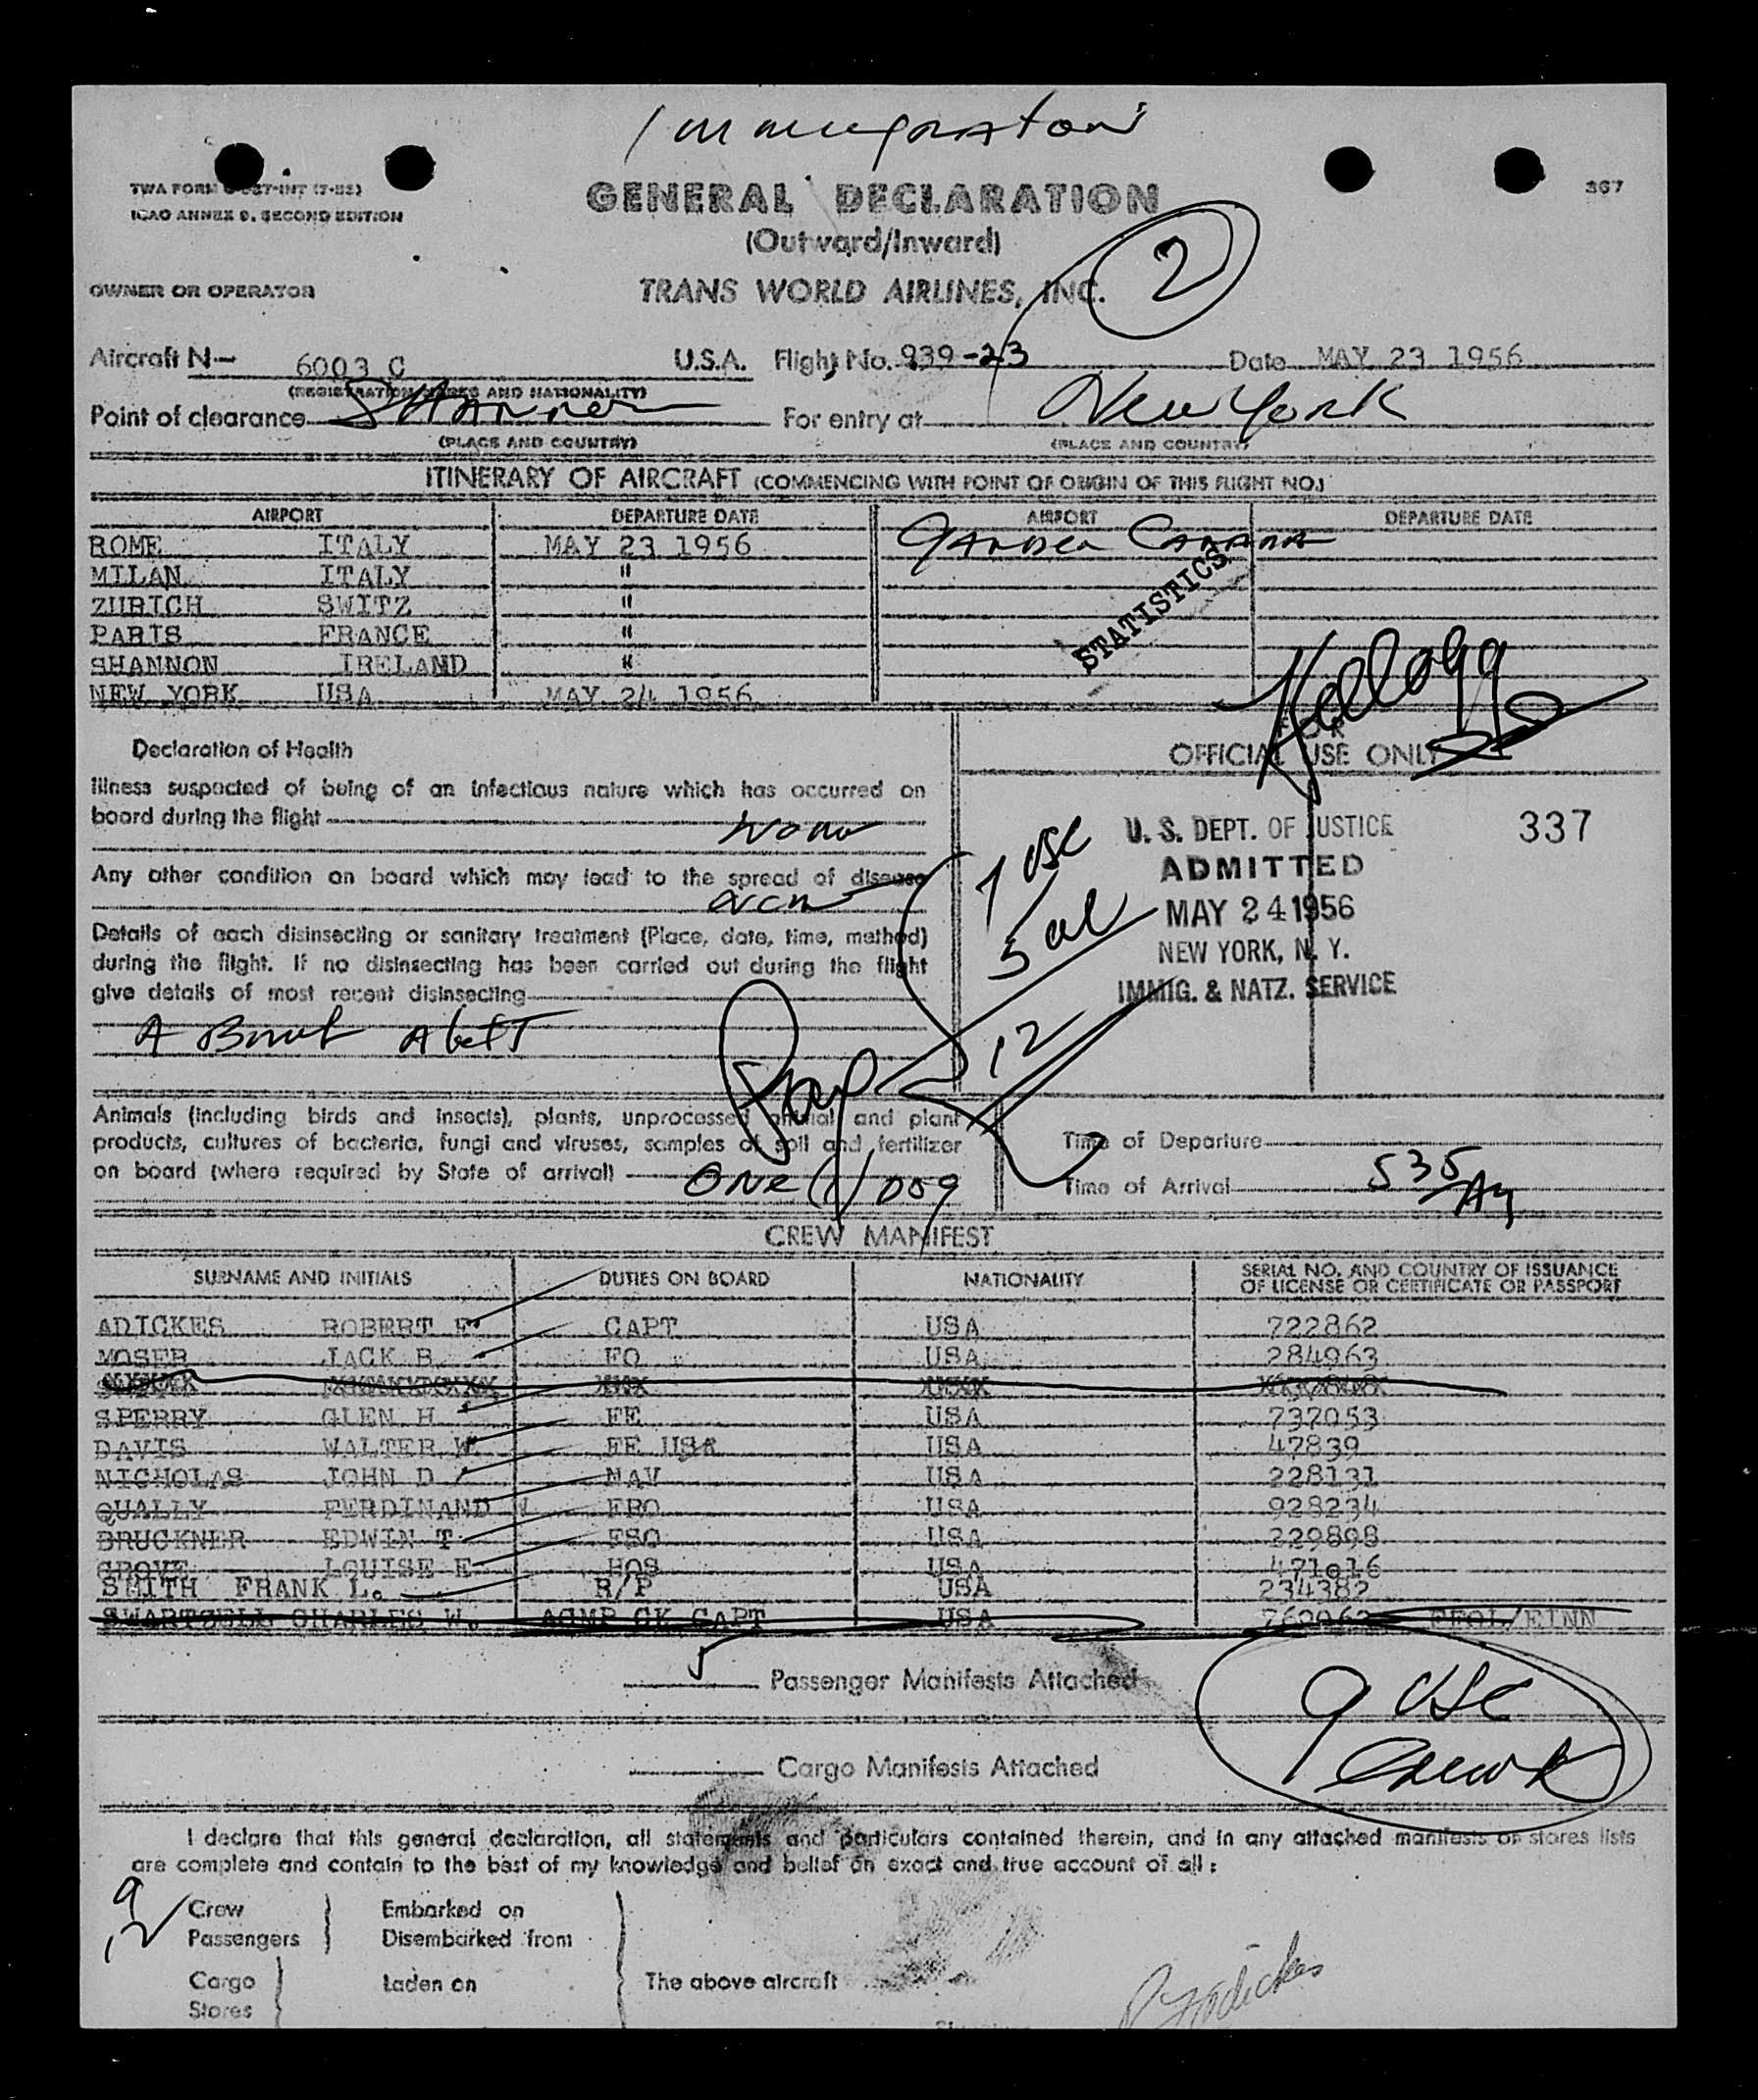 Immigration
TWA FORM INT (7-55)
ICAO ANNEX 9, SECOND EDITION
367
GENERAL DECLARATION
(Outward/Inward)
2
OWNER OR OPERATOR
TRANS WORLD AIRLINES, INC.
Aircraft N- 6003 C U.S.A. Flight No. 939-23 Date MAY 23 1956
(REGISTRATION MARKS AND NATIONALITY)
Point of clearance Shannon For entry at New York
(PLACE AND COUNTRY) (PLACE AND COUNTRY)
ITINERARY OF AIRCRAFT (COMMENCING WITH POINT OF ORIGIN OF THIS FLIGHT NO.)
AIRPORT DEPARTURE DATE AIRPORT DEPARTURE DATE
ROME ITALY MAY 23 1956 Gander Canada
MILAN ITALY "
ZURICH SWITZ "
PARIS FRANCE "
SHANNON IRELAND "
NEW YORK USA MAY 24 1956
STATISTICS
Kellogg
Declaration of Health
FOR
OFFICIAL USE ONLY
Illness suspected of being of an infectious nature which has occurred on
board during the flight None
Any other condition on board which may lead to the spread of disease
Details of each disinsecting or sanitary treatment (Place, date, time, method)
during the flight. If no disinsecting has been carried out during the flight
give details of most recent disinsecting
7 USC
5 al
12
U. S. DEPT. OF JUSTICE 337
ADMITTED
MAY 24 1956
NEW YORK, N. Y.
IMMIG. & NATZ. SERVICE
Animals (including birds and insects), plants, unprocessed animal and plant
products, cultures of bacteria, fungi and viruses, samples of soil and fertilizer
on board (where required by State of arrival) One (1) Dog
Time of Departure
Time of Arrival 535 AM
CREW MANIFEST
SURNAME AND INITIALS DUTIES ON BOARD NATIONALITY SERIAL NO. AND COUNTRY OF ISSUANCE
OF LICENSE OR CERTIFICATE OR PASSPORT
ADICKES ROBERT F. CAPT USA 722862
MOSER JACK B. FO USA 284963
SPERRY GLEN H FE USA 737053
DAVIS WALTER W. FE USA USA 47839
NICHOLAS JOHN D NAV USA 228131
QUALLY FERDINAND N FRO USA 928234
BRUCKNER EDWIN T FSO USA 229898
GROVE LOUISE E HOS USA 471016
SMITH FRANK L. R/P USA 234382
SWARTSELL CHARLES W. ACMP CK CAPT USA
5 Passenger Manifests Attached
9 USC
Crew
Cargo Manifests Attached
I declare that this general declaration, all statements and particulars contained therein, and in any attached manifests or stores lists
are complete and contain to the best of my knowledge and belief an exact and true account of all:
9 Crew Embarked on
12 Passengers Disembarked from
Cargo Laden on The above aircraft
Stores
R Adickes